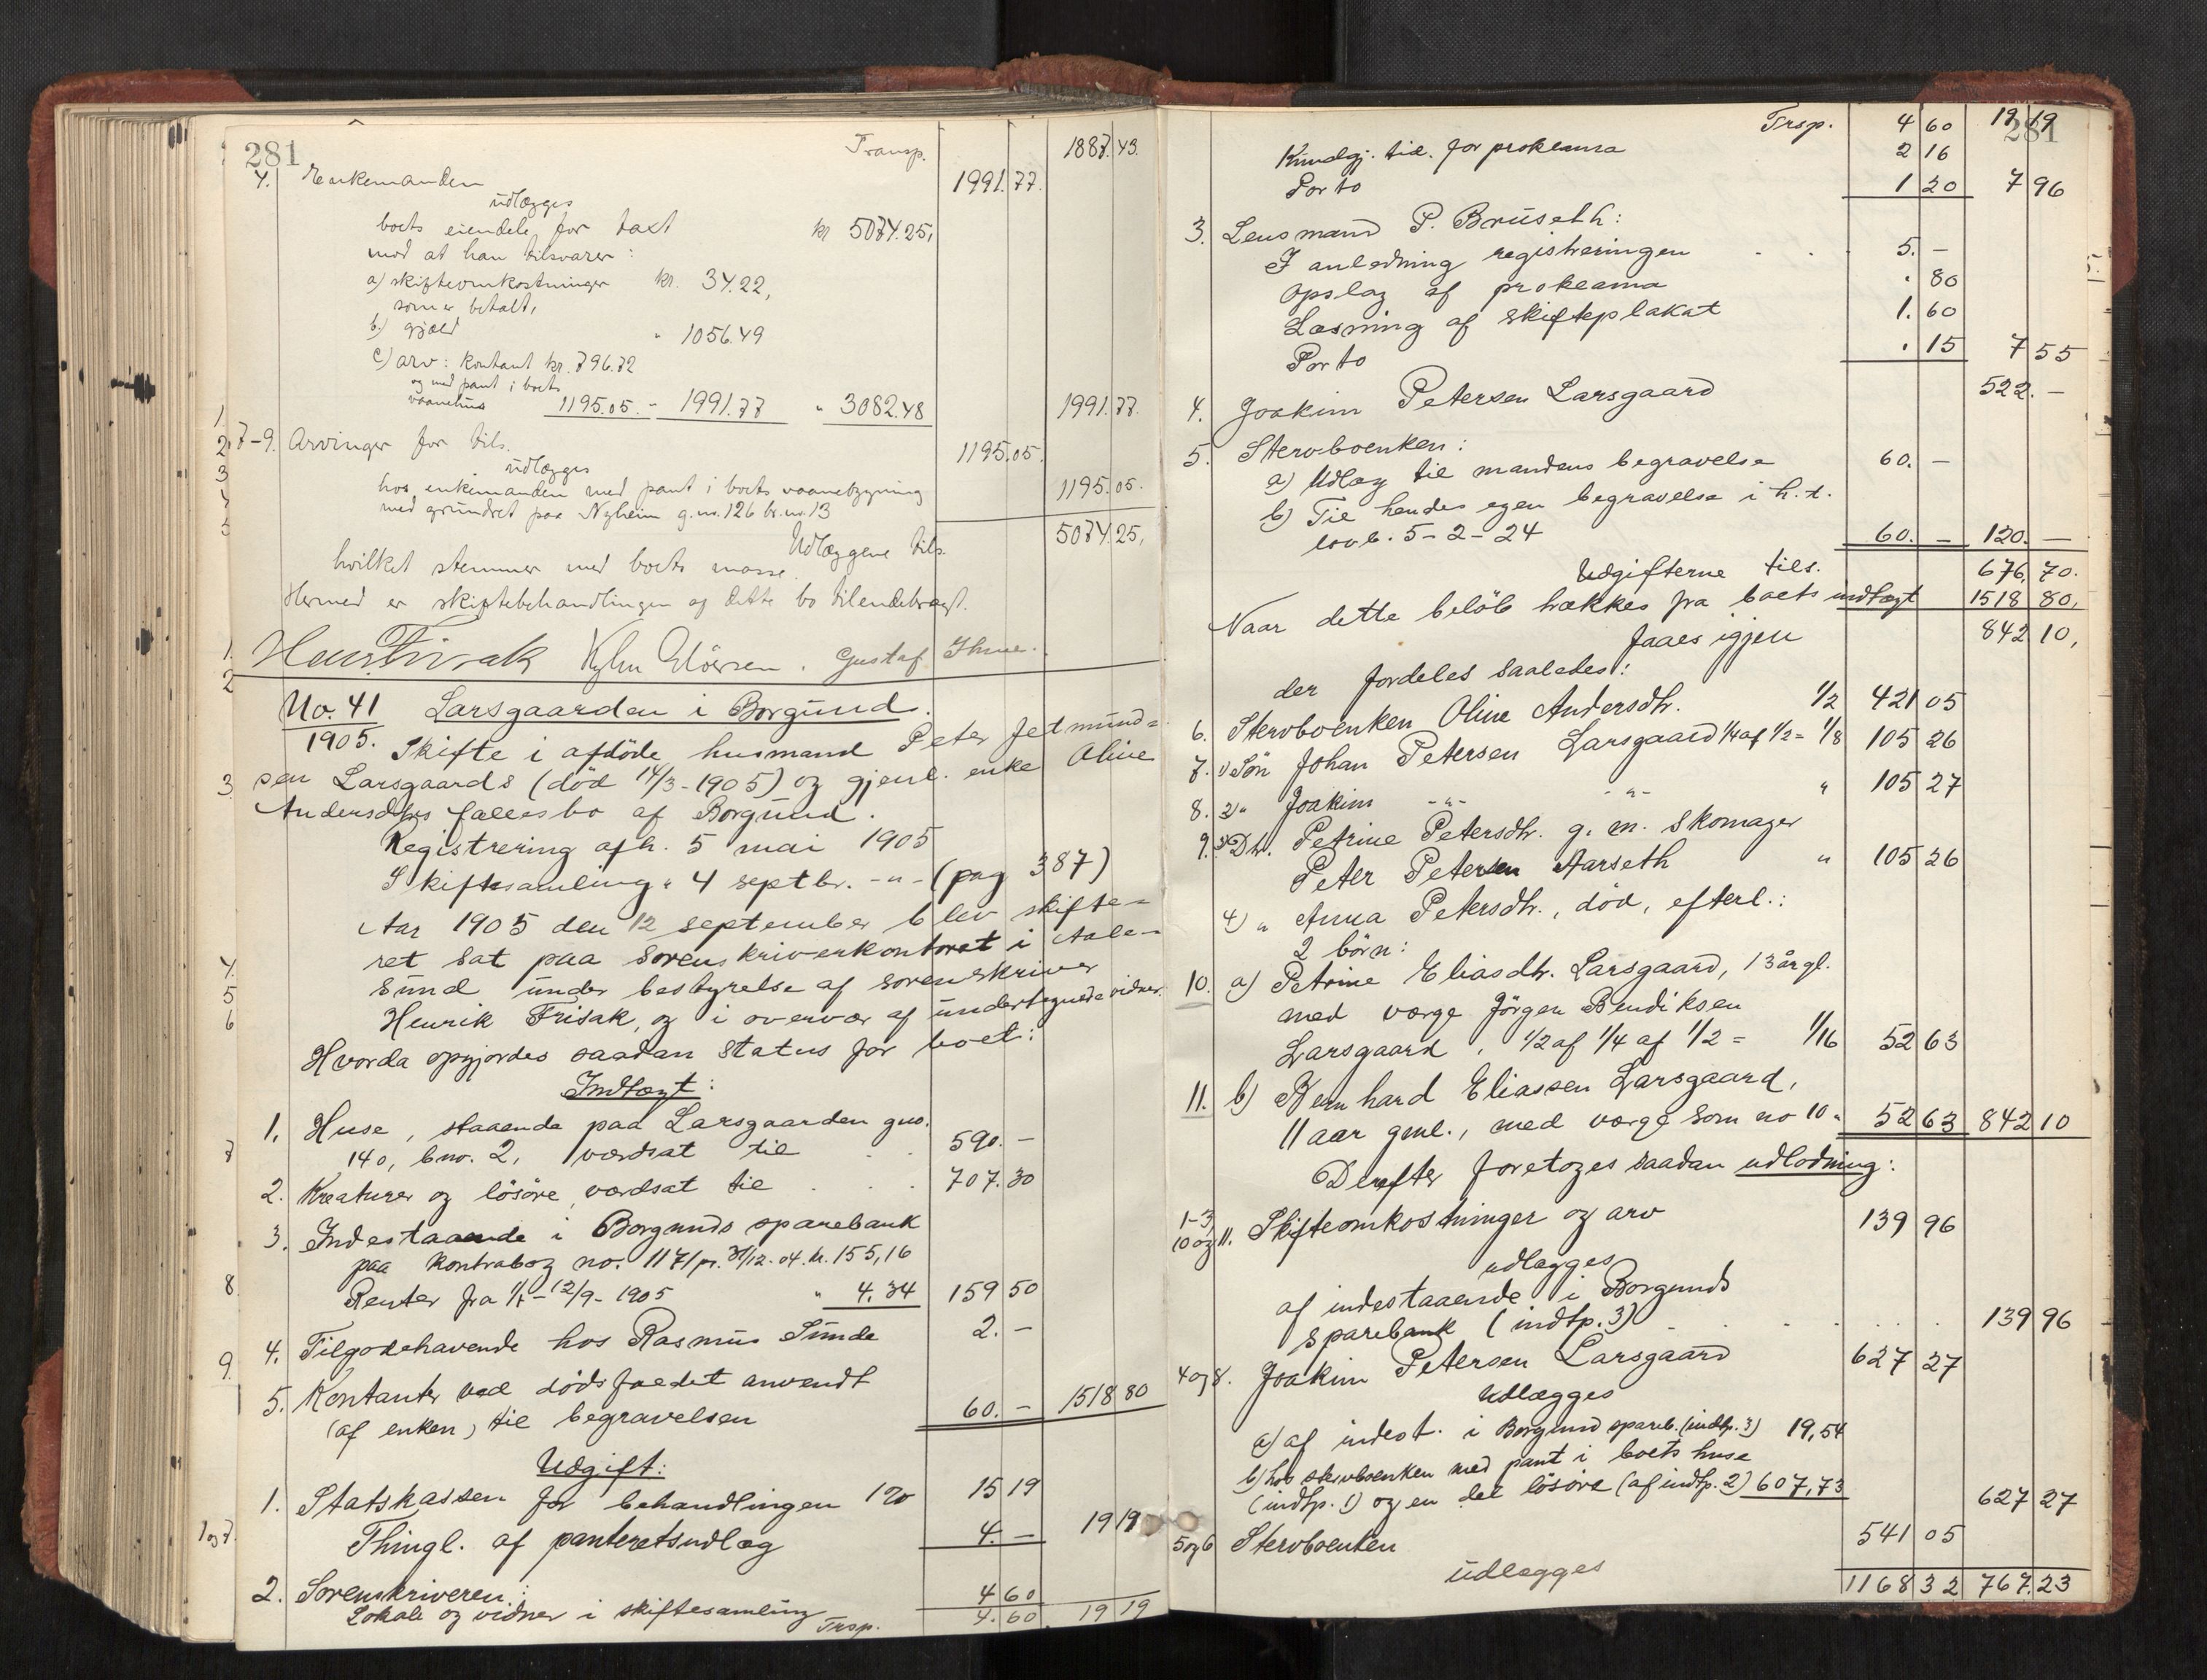 281
Transp. 1887.43.
4. Enkemanden 1991.77.
udlægges
boets eiendele for taxt kr 5074.25,
mod at han tilsvarer:
a) skifteomkostninger kr. 34.22,
som er betalt,
b) gjæld " 1056.49
c) arv: kontant kr. 796.72
og med pant i boets
vaanehus 1195.05. - 1991.77 " 3082.48 1991.77.
7-9. Arvinger for tils. 1195.05.
udlægges
hos enkemanden med pant i boets vaanebygning 1195.05.
med grundret paa Nyheim g.nr. 126 br.nr. 13
Udlæggene tils. 5074.25,
hvilket stemmer med boets masse.
Hermed er skiftebehandlingen og dette bo tilendebragt.
Henr Frisak Gustaf Ihme.
No. 41 Larsgaarden i Borgund.
1905. Skifte i afdöde husmand Peter Jetmund=
sen Larsgaards (död 14/3-1905) og gjenl. enke Oline
Andersdtrs fællesbo af Borgund.
Registrering afh. 5 mai 1905
Skiftesamling " 4 septbr. -"- (pag 387)
Aar 1905 den 12 september blev skifte=
ret sat paa sorenskriverkontoret i Aale-
sund under bestyrelse af sorenskriver
Henrik Frisak, og i overvær af undertegnede vidner.
Hvorda opgjordes saadan status for boet:
Indtægt:
1. Huse, staaende paa Larsgaarden gno.
140, bno. 2, værdsat til . . 590. -
2. Kreaturer og lösöre, værdsat til . . . 707.30
3. Indestaaende i Borgunds sparebank
paa kontrabog no. 1171 pr. 31/12-04. kr. 155,16
Renter fra 1/1 - 12/9 - 1905 " 4.34 159 50
4. Tilgodehavende hos Rasmus Sunde 2. -
5. Kontanter ved dödsfaldet anvendt
(af enken) til begravelsen 60. - 1518 80
Udgift:
1. Statskassen for behandlingen 1% 15 19
Thingl. af panteretsudlæg 4. - 19 19
2. Sorenskriveren:
Lokale og vidner i skiftesamling 4 60
Trsp. 4.60 19 19
281
Trsp. 4 60 19 19
Kundgj. tid. for proklama 2 16
Porto 1 20 7 96
3. Lensmand P. Bruseth:
I anledning registreringen . . . 5. -
Opslag af proklama . 80
Læsning af skifteplakat 1. 60
Porto . 15 7 55
4. Joakim Petersen Larsgaard 522. -
5. Stervboenken:
a) Udlæg til mandens begravelse 60. -
b) Til hendes egen begravelse i h. t.
lovb. 5-2-24 60. - 120. -
Udgifterne tils. 676. 70.
Naar dette belöb trækkes fra boets indtægt 1518 80,
faaes igjen 842 10,
der fordeles saaledes:
6. Stervboenken Oline Andersdtr. 1/2 421 05
7. 1) Sön Johan Petersen Larsgaard 1/4 af 1/2 = 1/8 105 26
8. 2) " Joakim -"- -"- " 105 27
9. 3) Dtr. Petrine Petersdtr. g. m. skomager
Peter Petersen Aarseth " 105 26
4) " Anna Petersdtr., död, efterl.:
2 börn:
10. a) Petrine Eliasdtr. Larsgaard, 13 år gl.
med værge Jörgen Bendiksen
Larsgaard, 1/2 af 1/4 af 1/2 = 1/16 52 63
11. b) Bernhard Eliassen Larsgaard,
11 aar gml., med værge som no 10 " 52 63 842 10
Derefter foretoges saadan udlodning:
1-3,
10 og 11. Skifteomkostninger og arv 139 96
udlægges
af indestaaende i Borgunds
sparebank (indtp. 3) . . . . . . 139 96
4 og 8. Joakim Petersen Larsgaard 627 27
Udlægges
a) af indest. i Borgund spareb. (indtp. 3) 19,54
b) hos stervboenken med pant i boets huse
(indtp. 1) og en del lösöre (af indtp. 2) 607,73 627 27
5 og 6 Stervboenken 541 05
udlægges
1168 32 767.23